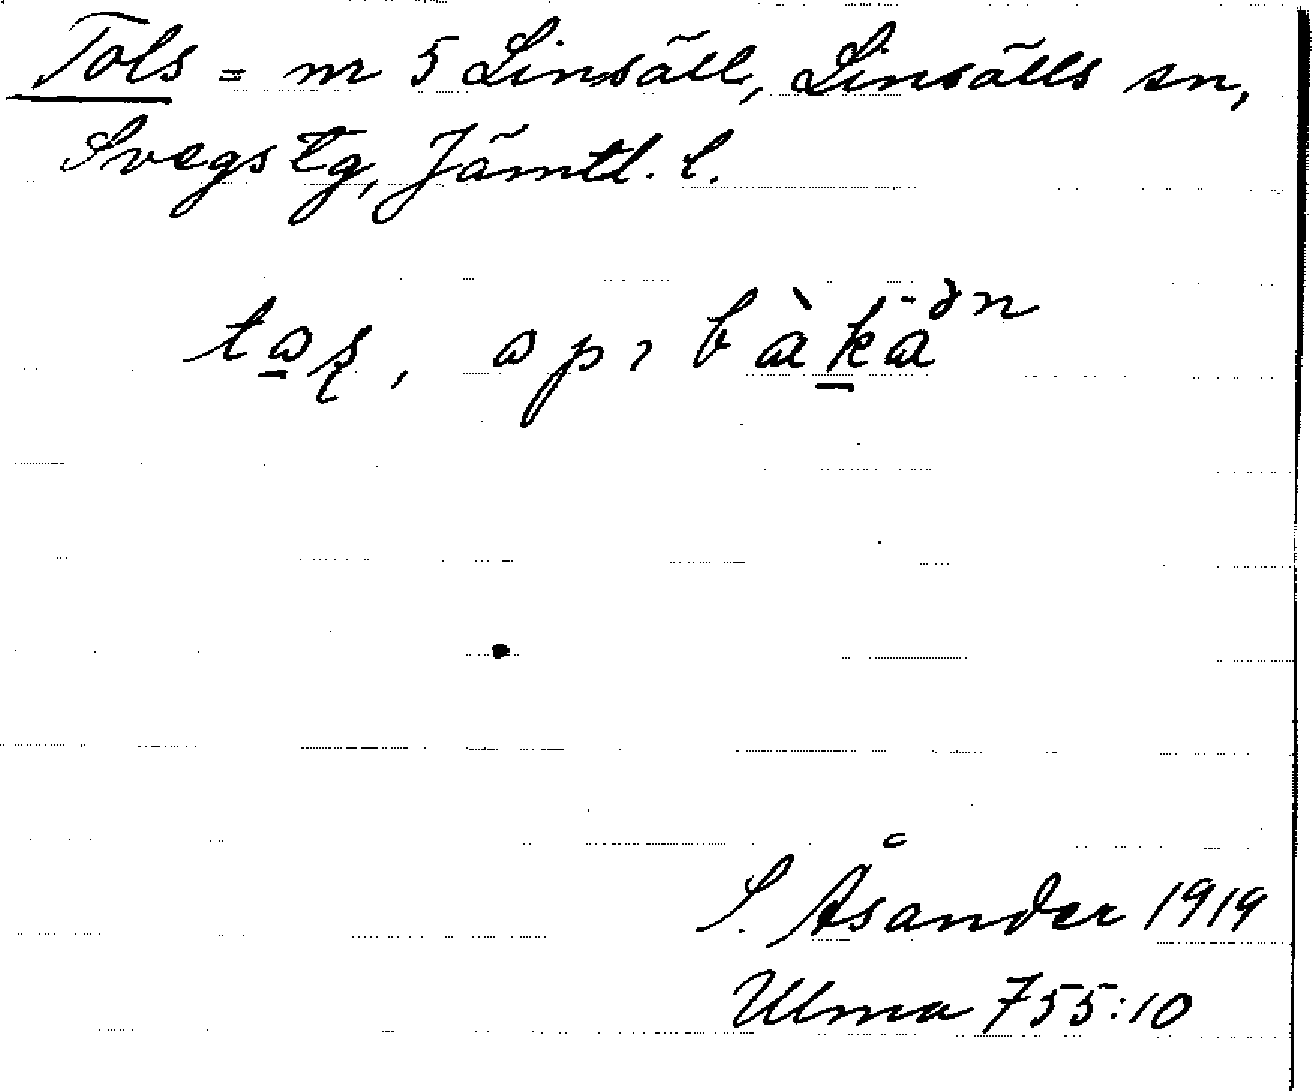 Tols = nr 5 Linsäll, Linsälls sn,
Svegs tg, Jämtl. l.
S. Åsander 1919
Ulma 755:10